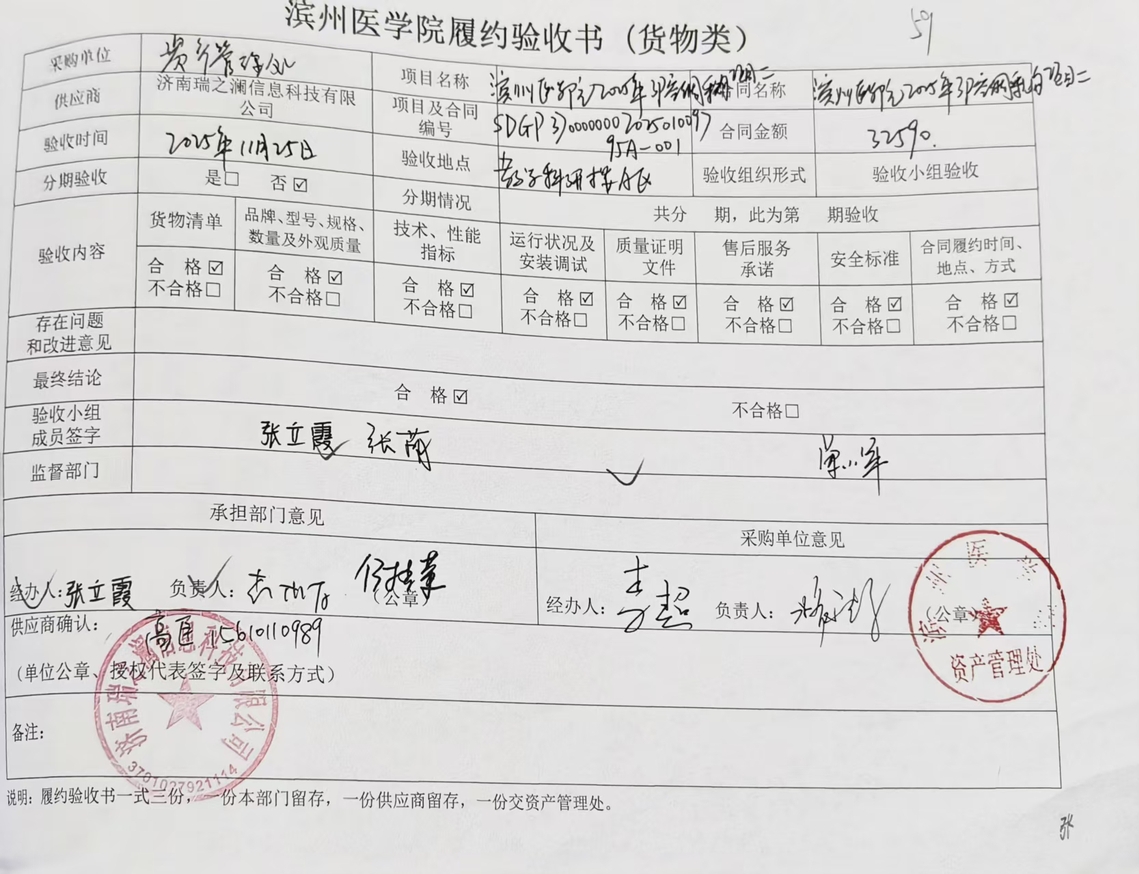 滨州医学院履约验收书（货物类）
采购单位
项目名称 滨州医学院2025年
合同名称 滨州医学院2025年
供应商 济南瑞之澜信息科技有限公司
项目及合同编号 SDGP370000000202501009795A-001
合同金额 32590.
验收时间 2025年11月25日
验收地点 科研楼A区
验收组织形式 验收小组验收
分期验收 是□ 否☑
分期情况 共分 期，此为第 期验收
验收内容
货物清单
合 格☑
不合格□
品牌、型号、规格、
数量及外观质量
合 格☑
不合格□
技术、性能
指标
合 格☑
不合格□
运行状况及
安装调试
合 格☑
不合格□
质量证明
文件
合 格☑
不合格□
售后服务
承诺
合 格☑
不合格□
安全标准
合 格☑
不合格□
合同履约时间、
地点、方式
合 格☑
不合格□
存在问题
和改进意见
最终结论 合 格☑ 不合格□
验收小组
成员签字 张立霞
监督部门
承担部门意见 采购单位意见
经办人：张立霞 负责人： （公章）
经办人： 负责人： （公章）
滨州医学院
资产管理处
供应商确认： 15610110989
（单位公章、授权代表签字及联系方式）
济南瑞之澜信息科技有限公司
3701027921114
备注：
说明：履约验收书一式三份，一份本部门留存，一份供应商留存，一份交资产管理处。